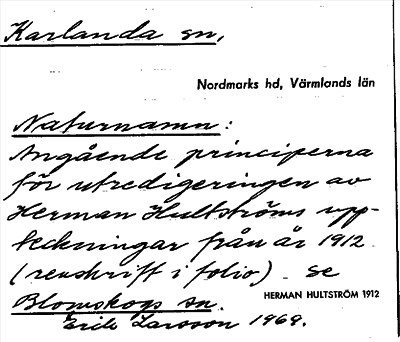 Karlanda sn,
Nordmarks hd, Värmlands län
Naturnamn:
Angående principerna
för utredigeringen av
Herman Hultströms upp-
teckningar från år 1912
(renskrift i folio) se
Blomskogs sn.
HERMAN HULTSTRÖM 1912
Erik Larsson 1969.